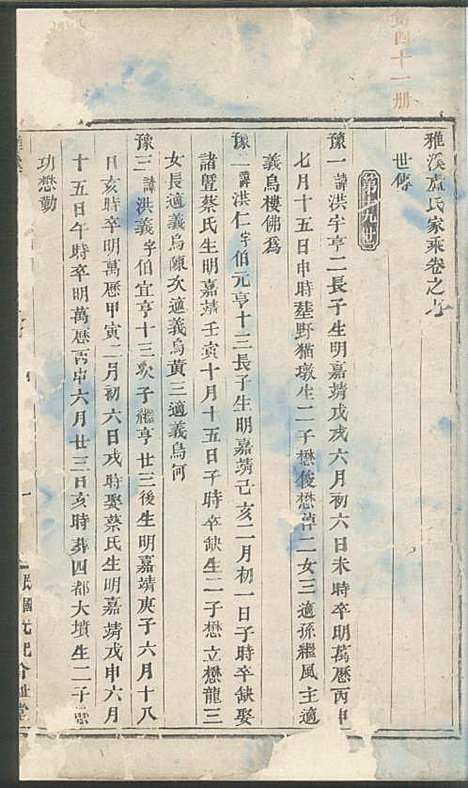 第四十一册
雅溪盧氏家乘卷之
世傳
第十九世
豫一諱洪宇亨二長子生明嘉靖戊戌六月初六日未時卒明萬歷丙申
七月十五日申時塟野猫墩生二子懋俊懋倬二女三適孫繼風主適
義烏樓佛爲
豫二諱洪仁字伯元亨十三長子生明嘉靖己亥二月初一日子時卒缺娶
諸暨蔡氏生明嘉靖壬寅十月十五日子時卒缺生二子懋立懋龍三
女長適義烏陳次適義烏黃三適義烏何
豫三諱洪義字伯宜亨十三次子繼亨廿三後生明嘉靖庚子六月十八
日亥時卒明萬歷甲寅二月初六日戌時娶蔡氏生明嘉靖戊申六月
十五日午時卒明萬歷丙申六月廿三日亥時葬四都大墳生二子懋
功懋勤
民國九配合